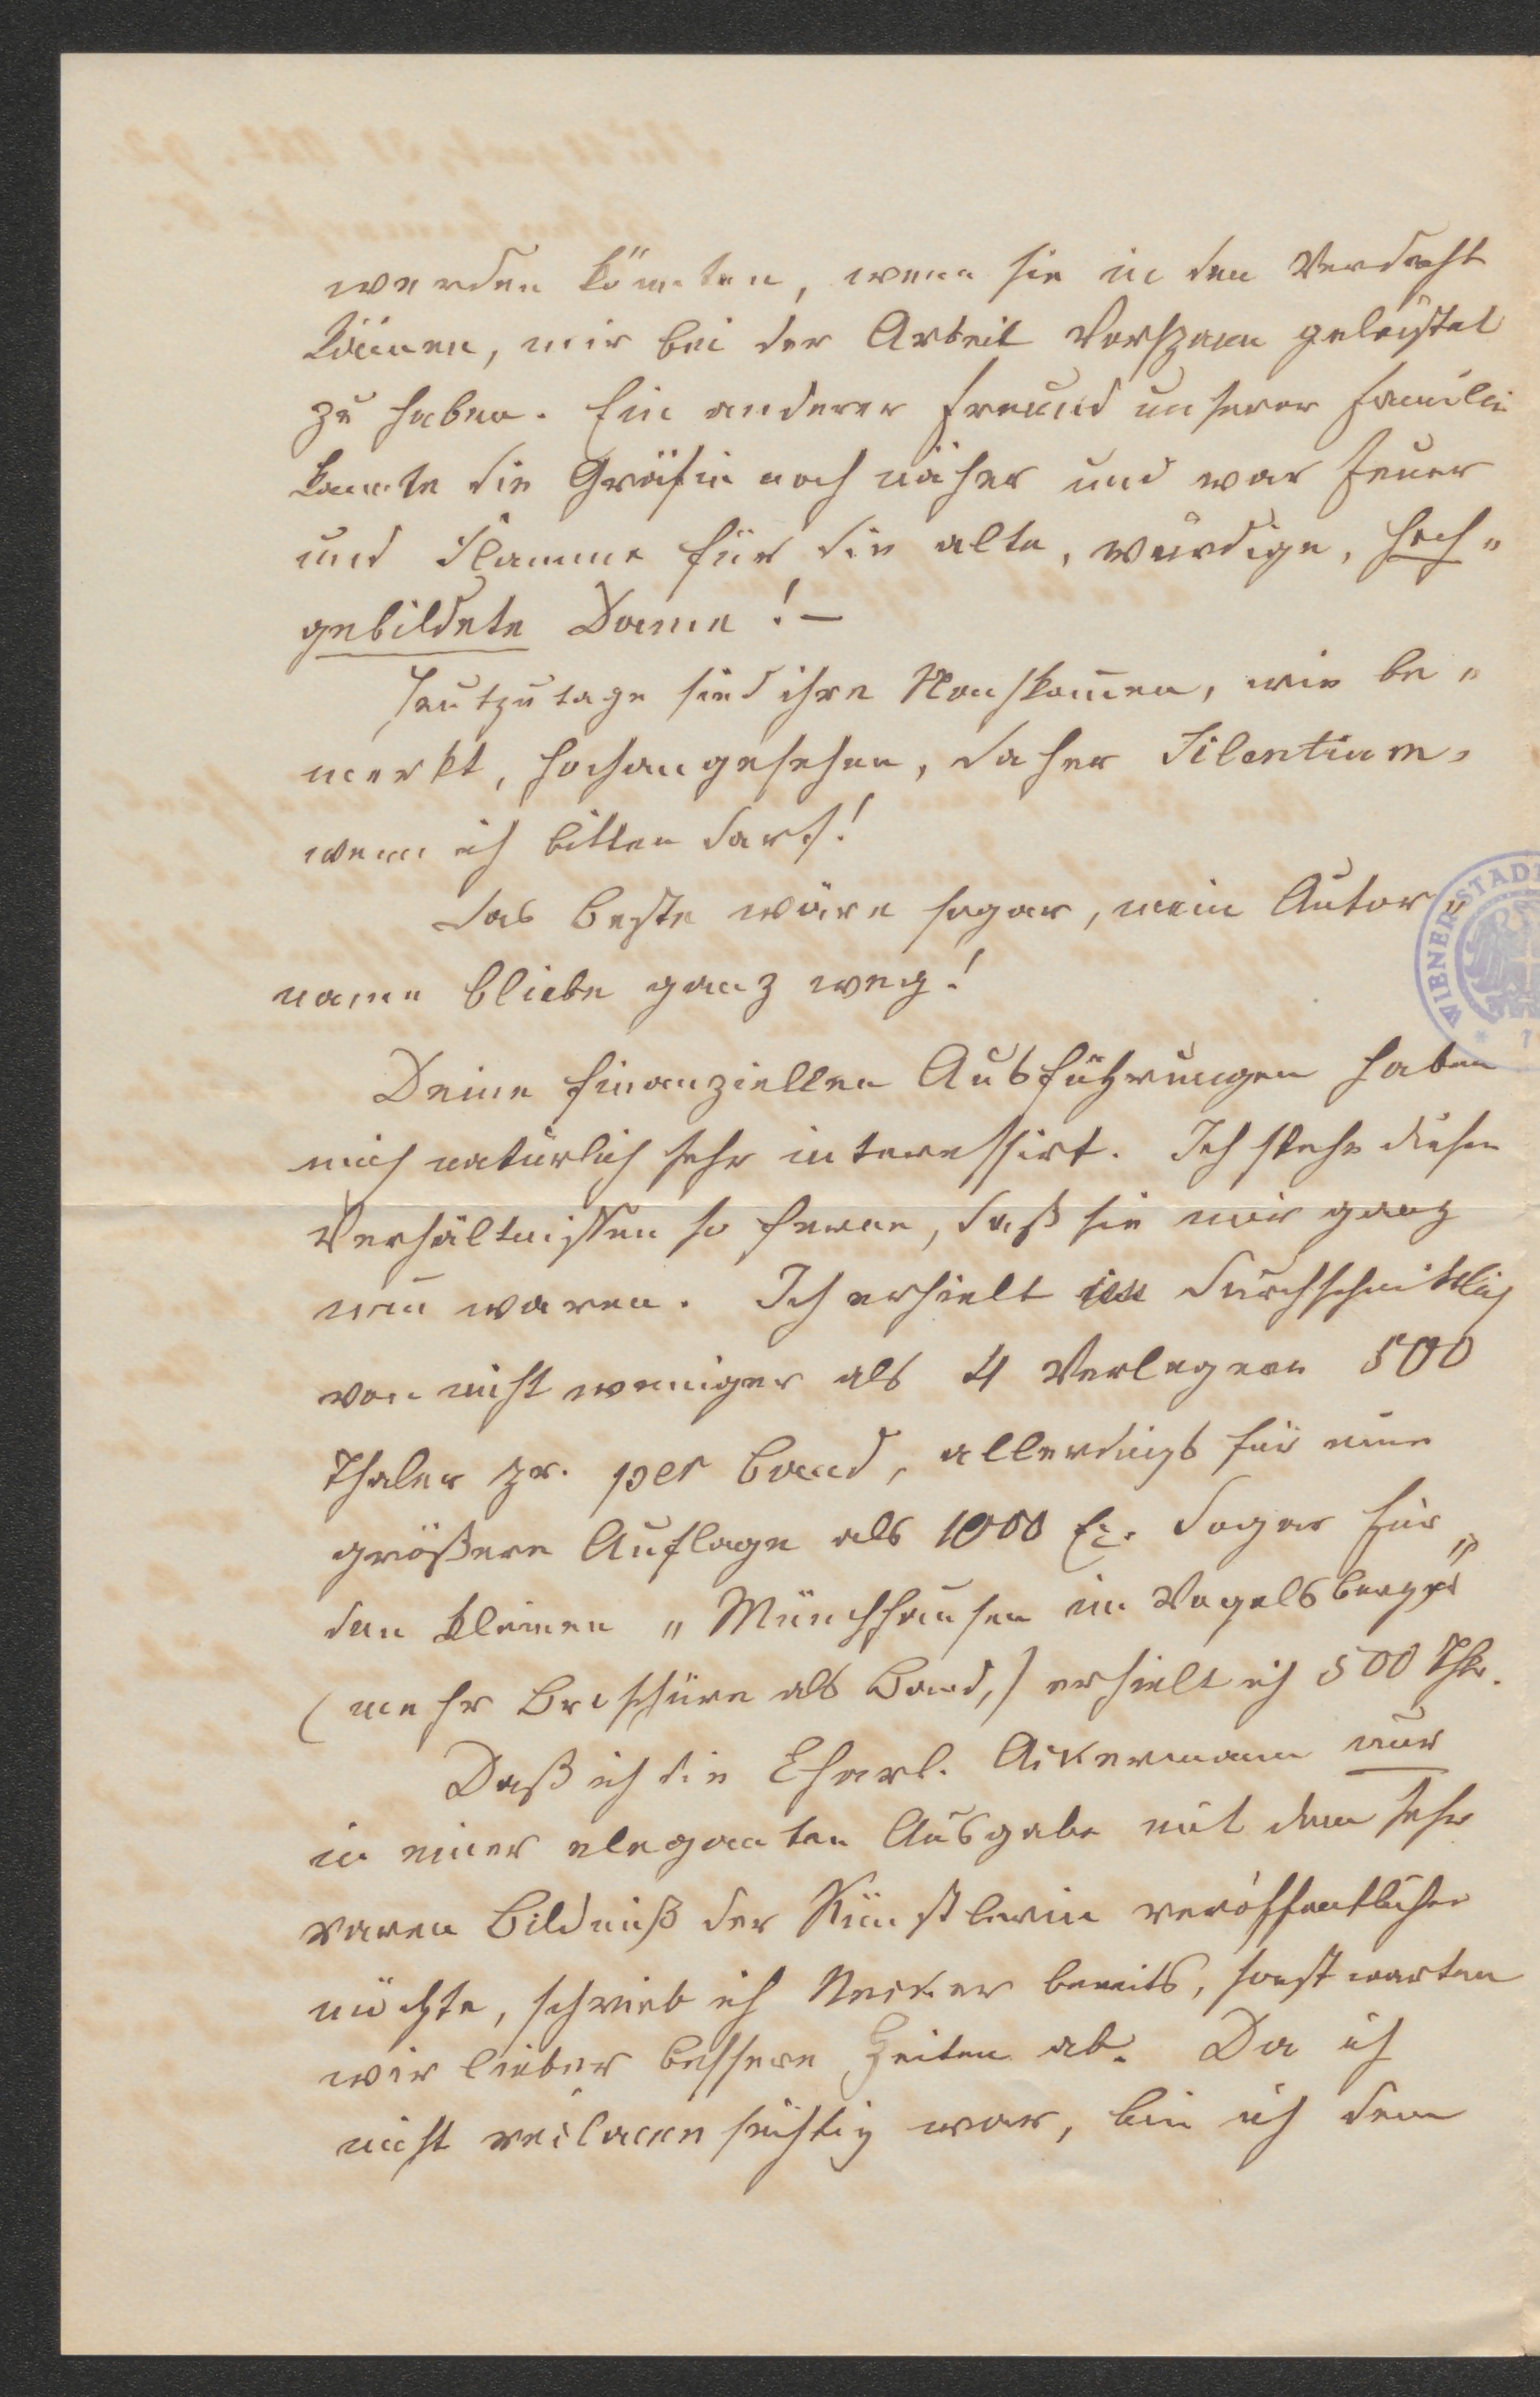 werden könnten, wenn sie in den Verdacht
kämen, mir bei der Arbeit Vorspann geleistet
zu haben. Ein anderer Freund unserer Familie
kannte die Gräfin noch näher und war Feuer
und Flamme für die alte, würdige, hoch„
gebildete Dame! —
Heutzutage sind ihre Nachkommen, wie be„
merkt, hochangesehen, daher Silentium,
wenn ich bitten darf!
Das Beste wäre sogar, mein Autor„
name bliebe ganz weg!
Deine finanziellen Ausführungen haben
mich natürlich sehr interessirt. Ich stehe diesen
Verhältnissen so ferne, daß sie mir ganz
neu waren. Ich erhielt durchschnittlich
von nicht weniger als 4 Verlegern 500
Thaler pr. per Band, allerdings für eine
größere Auflage als 1000 Ex. Sogar für
den kleinen „Münchhausen im Vogelsberge“
(mehr Broschüre als Band,) erhielt ich 500 Thlr.
Daß ich die Charl. Ackermann nur
in einer eleganten Ausgabe mit dem sehr
raren Bildniß der Künstlerin veröffentlichen
möchte, schrieb ich Necker bereits, sonst warten
wir lieber bessere Zeiten ab. Da ich
nicht reclamesüchtig war, bin ich dem
WIENER STAD